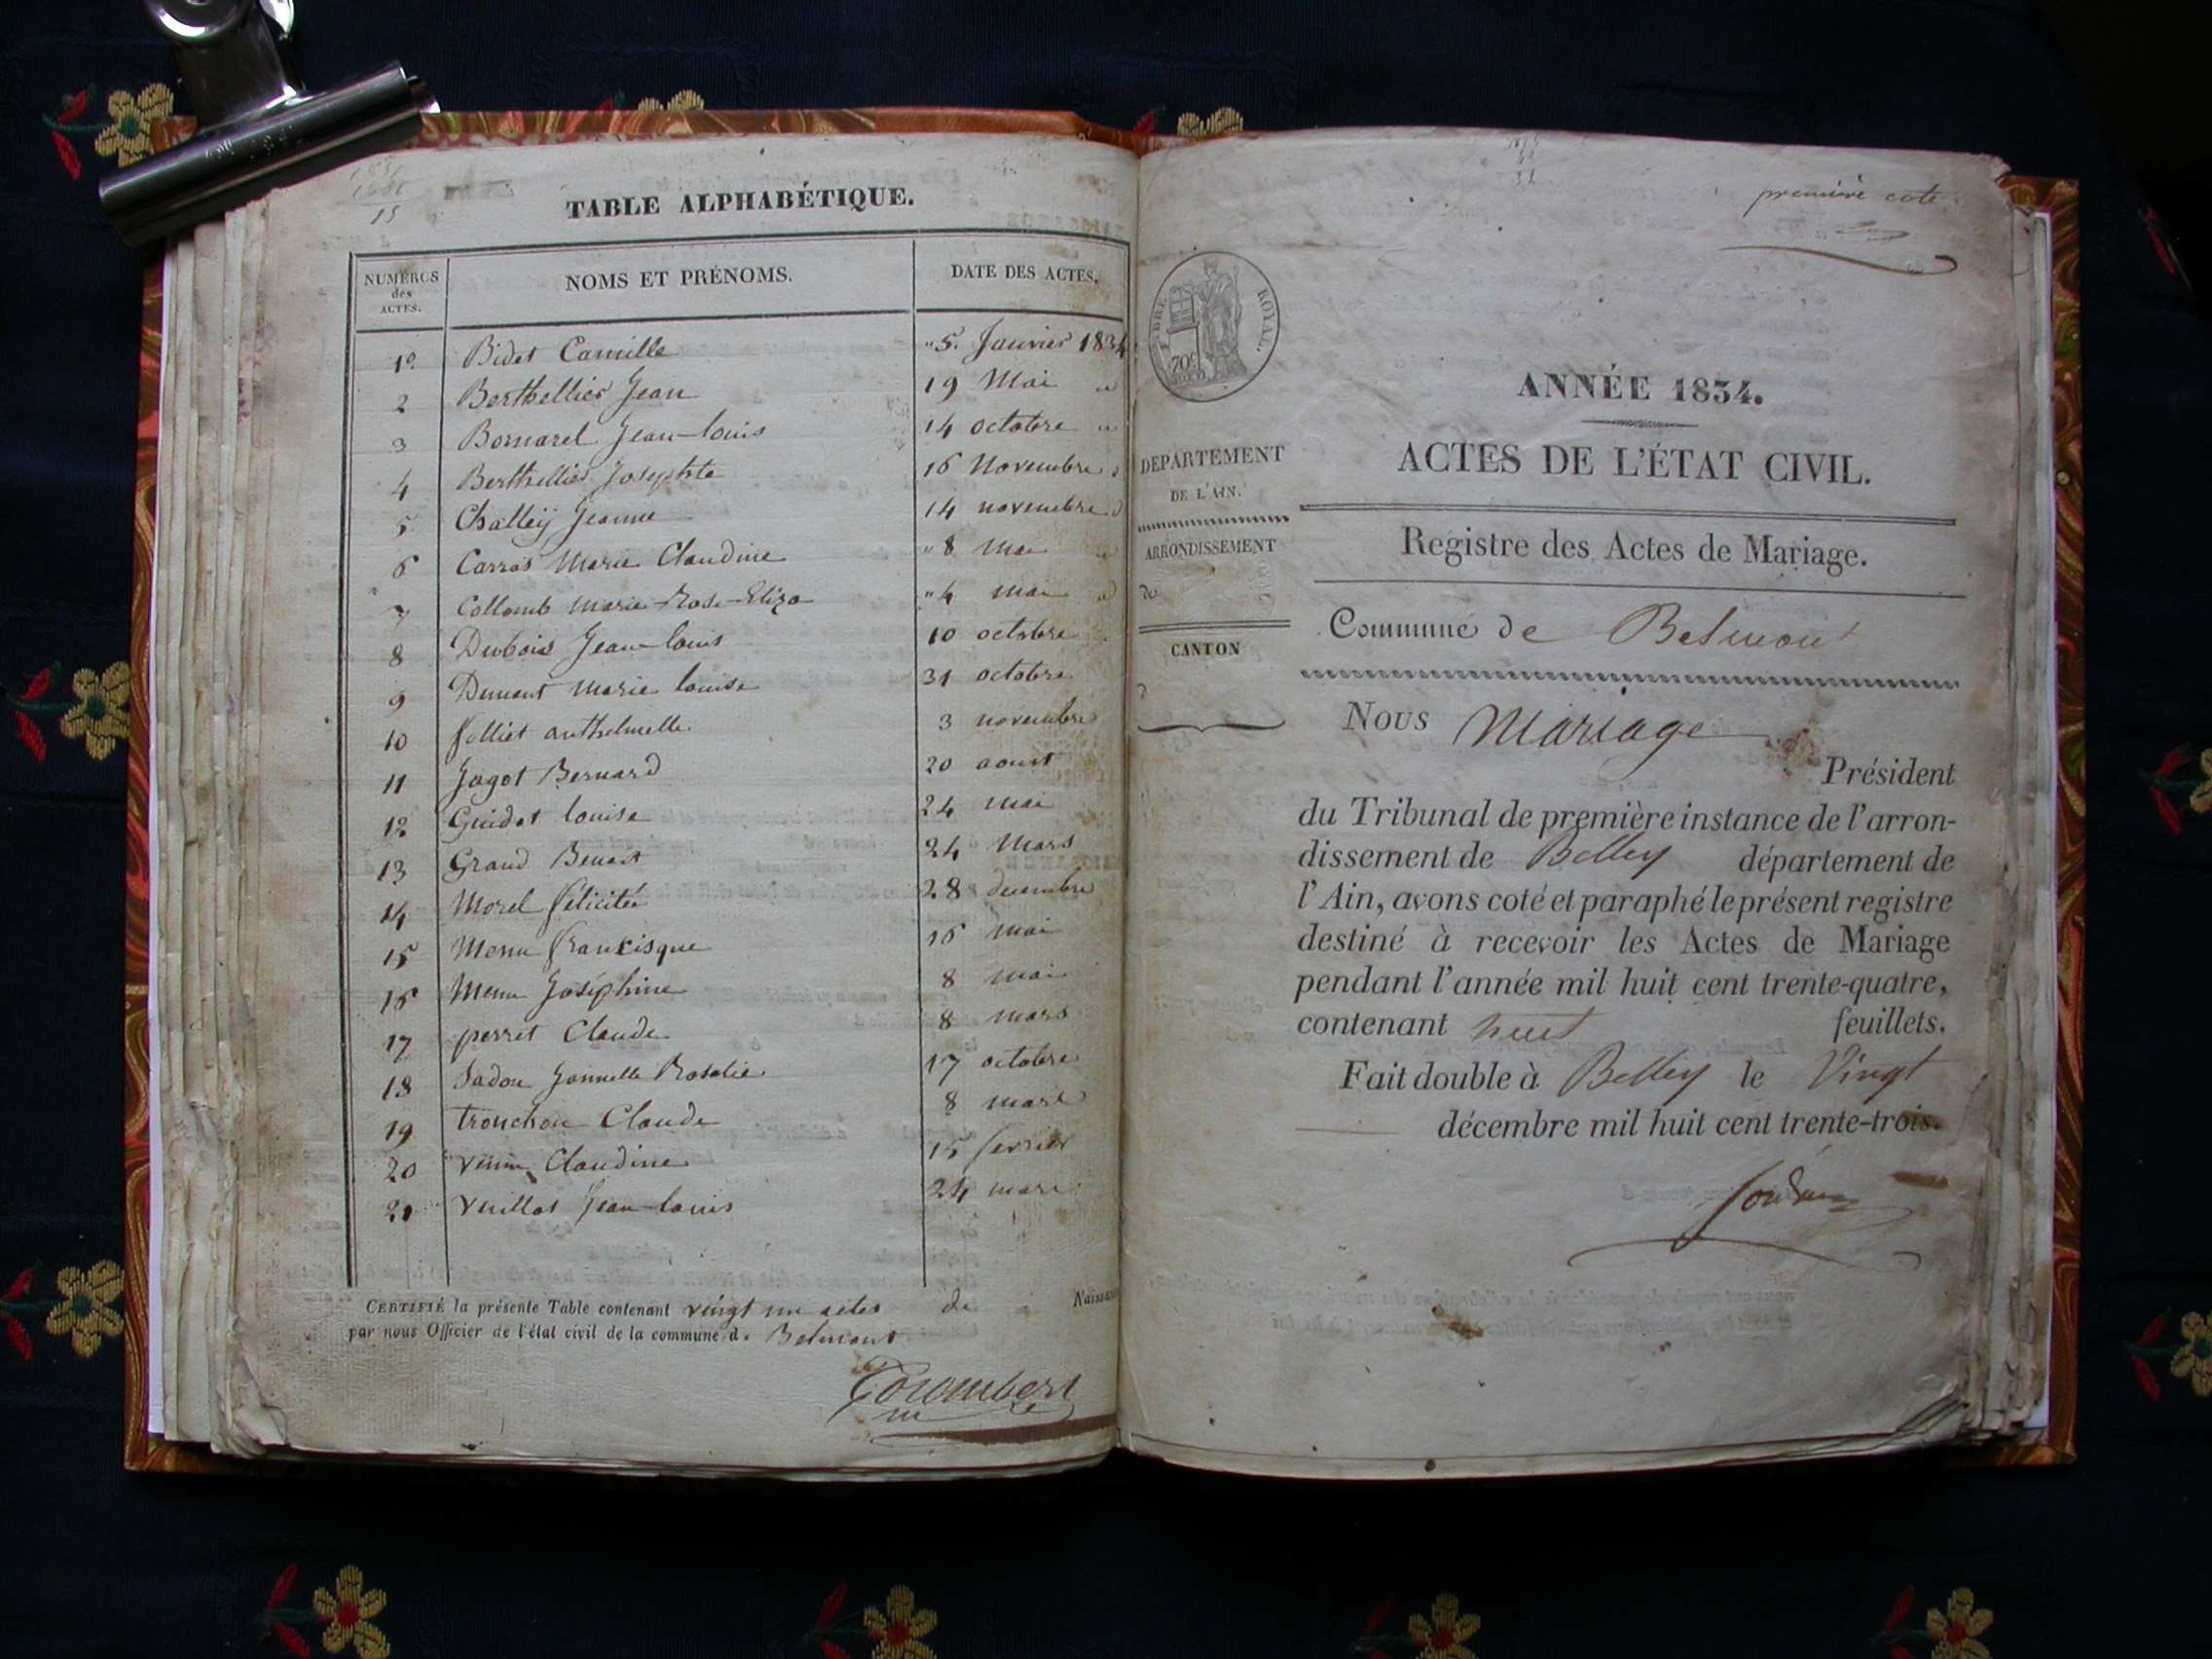 15
TABLE ALPHABÉTIQUE.
NUMÉROS des ACTES. NOMS ET PRÉNOMS. DATE DES ACTES.
1º Bidet Camille " 5. Janvier 1834
2 Berthellier Jean 19 Mai
3 Bornarel Jean-louis 14 octobre
4 Berthellier Josephte 16 Novembre
5 Challeÿ Jeanne 14 novembre
6 Carras Marie Claudine " 8 mai
7 Collomb Marie-Rose-Eliza " 4 mai
8 Dubois Jean-louis 10 octobre
9 Dumont Marie louise 31 octobre
10 folliet anthelmette 3 novembre
11 Jagot Bernard 20 aoust
12 Guidot louise 24 mai
13 Grand Benoit 24 Mars
14 Morel félicité 28 decembre
15 Menu francisque 16 mai
16 Menu Joséphine 8 mai
17 perret Claude 8 mars
18 Sadou Jannette Rosalie 17 octobre
19 tronchon Claude 8 mars
20 Claudine 15 fevrier
21 Vuillot Jean-louis 24 mars
CERTIFIÉ la présente Table contenant vingt un actes de Naissan
par nous Officier de l'état civil de la commune de Belmont
première cote
ROYAL.
70 c
ANNÉE 1834.
ACTES DE L'ÉTAT CIVIL.
DEPARTEMENT
DE L'AIN.
ARRONDISSEMENT
de
CANTON
d
Registre des Actes de Mariage.
Commune de Belmont
Nous Mariage
Président
du Tribunal de première instance de l'arron-
dissement de Belley département de
l'Ain, avons coté et paraphé le présent registre
destiné à recevoir les Actes de Mariage
pendant l'année mil huit cent trente-quatre,
contenant feuillets.
Fait double à Belley le Vingt
décembre mil huit cent trente-trois.